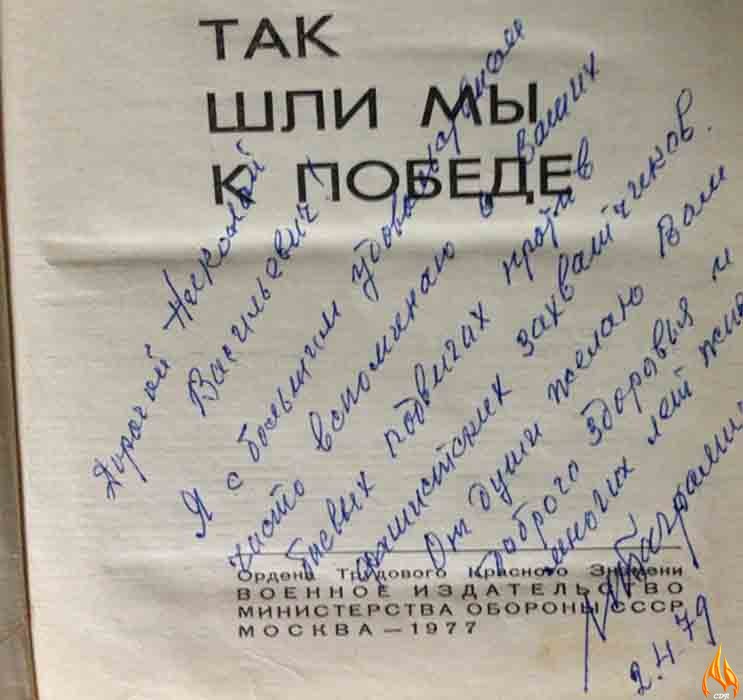 ТАК
ШЛИ МЫ
К ПОБЕДЕ
Дорогой Николай
Васильевич!
Я с большим удовольствием
часто вспоминаю о Ваших
боевых подвигах против
фашистских захватчиков.
От души желаю Вам
доброго здоровья и
многих лет жиз
Баграмян
2.4.79
Ордена Трудового Красного Знамени
ВОЕННОЕ ИЗДАТЕЛЬСТВО
МИНИСТЕРСТВА ОБОРОНЫ СССР
МОСКВА — 1977
CDR